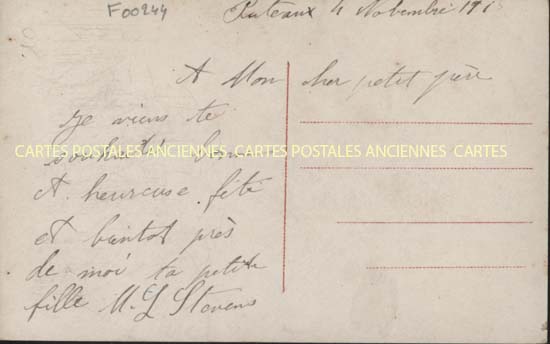 F00244
Puteaux 4 Novembre 191
A Mon cher petit père
je viens te
souhaiter bonne
et heureuse fête
et bientot près
de moi ta petite
fille M. L Stevens
CARTES POSTALES ANCIENNES CARTES POSTALES ANCIENNES CARTES